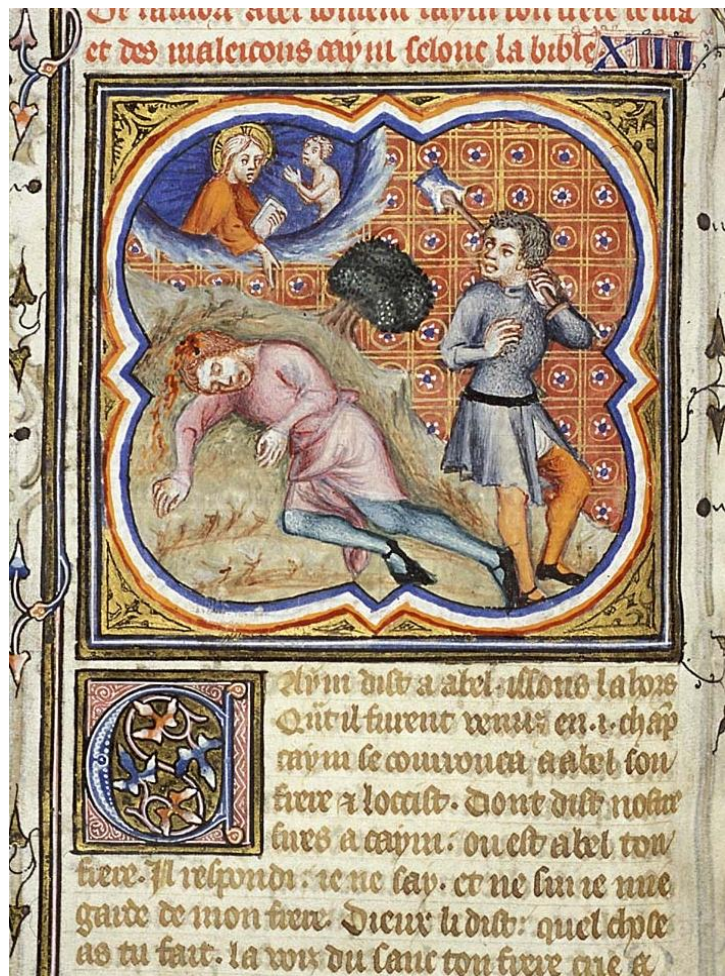 et des maleicons caym selonc la bible XIIII
Caym dist a abel. issons la hors
Quāt il furent venus en .i. chāp
caym se courouca a abel son
frere ⁊ loccist. Dont dist nostre
sires a caym. ou est abel ton
frere. Il respondi. ie ne say. et ne sui ie mie
garde de mon frere. Dieux li dist: quel chose
as tu fait. la voix du sanc ton frere crie a